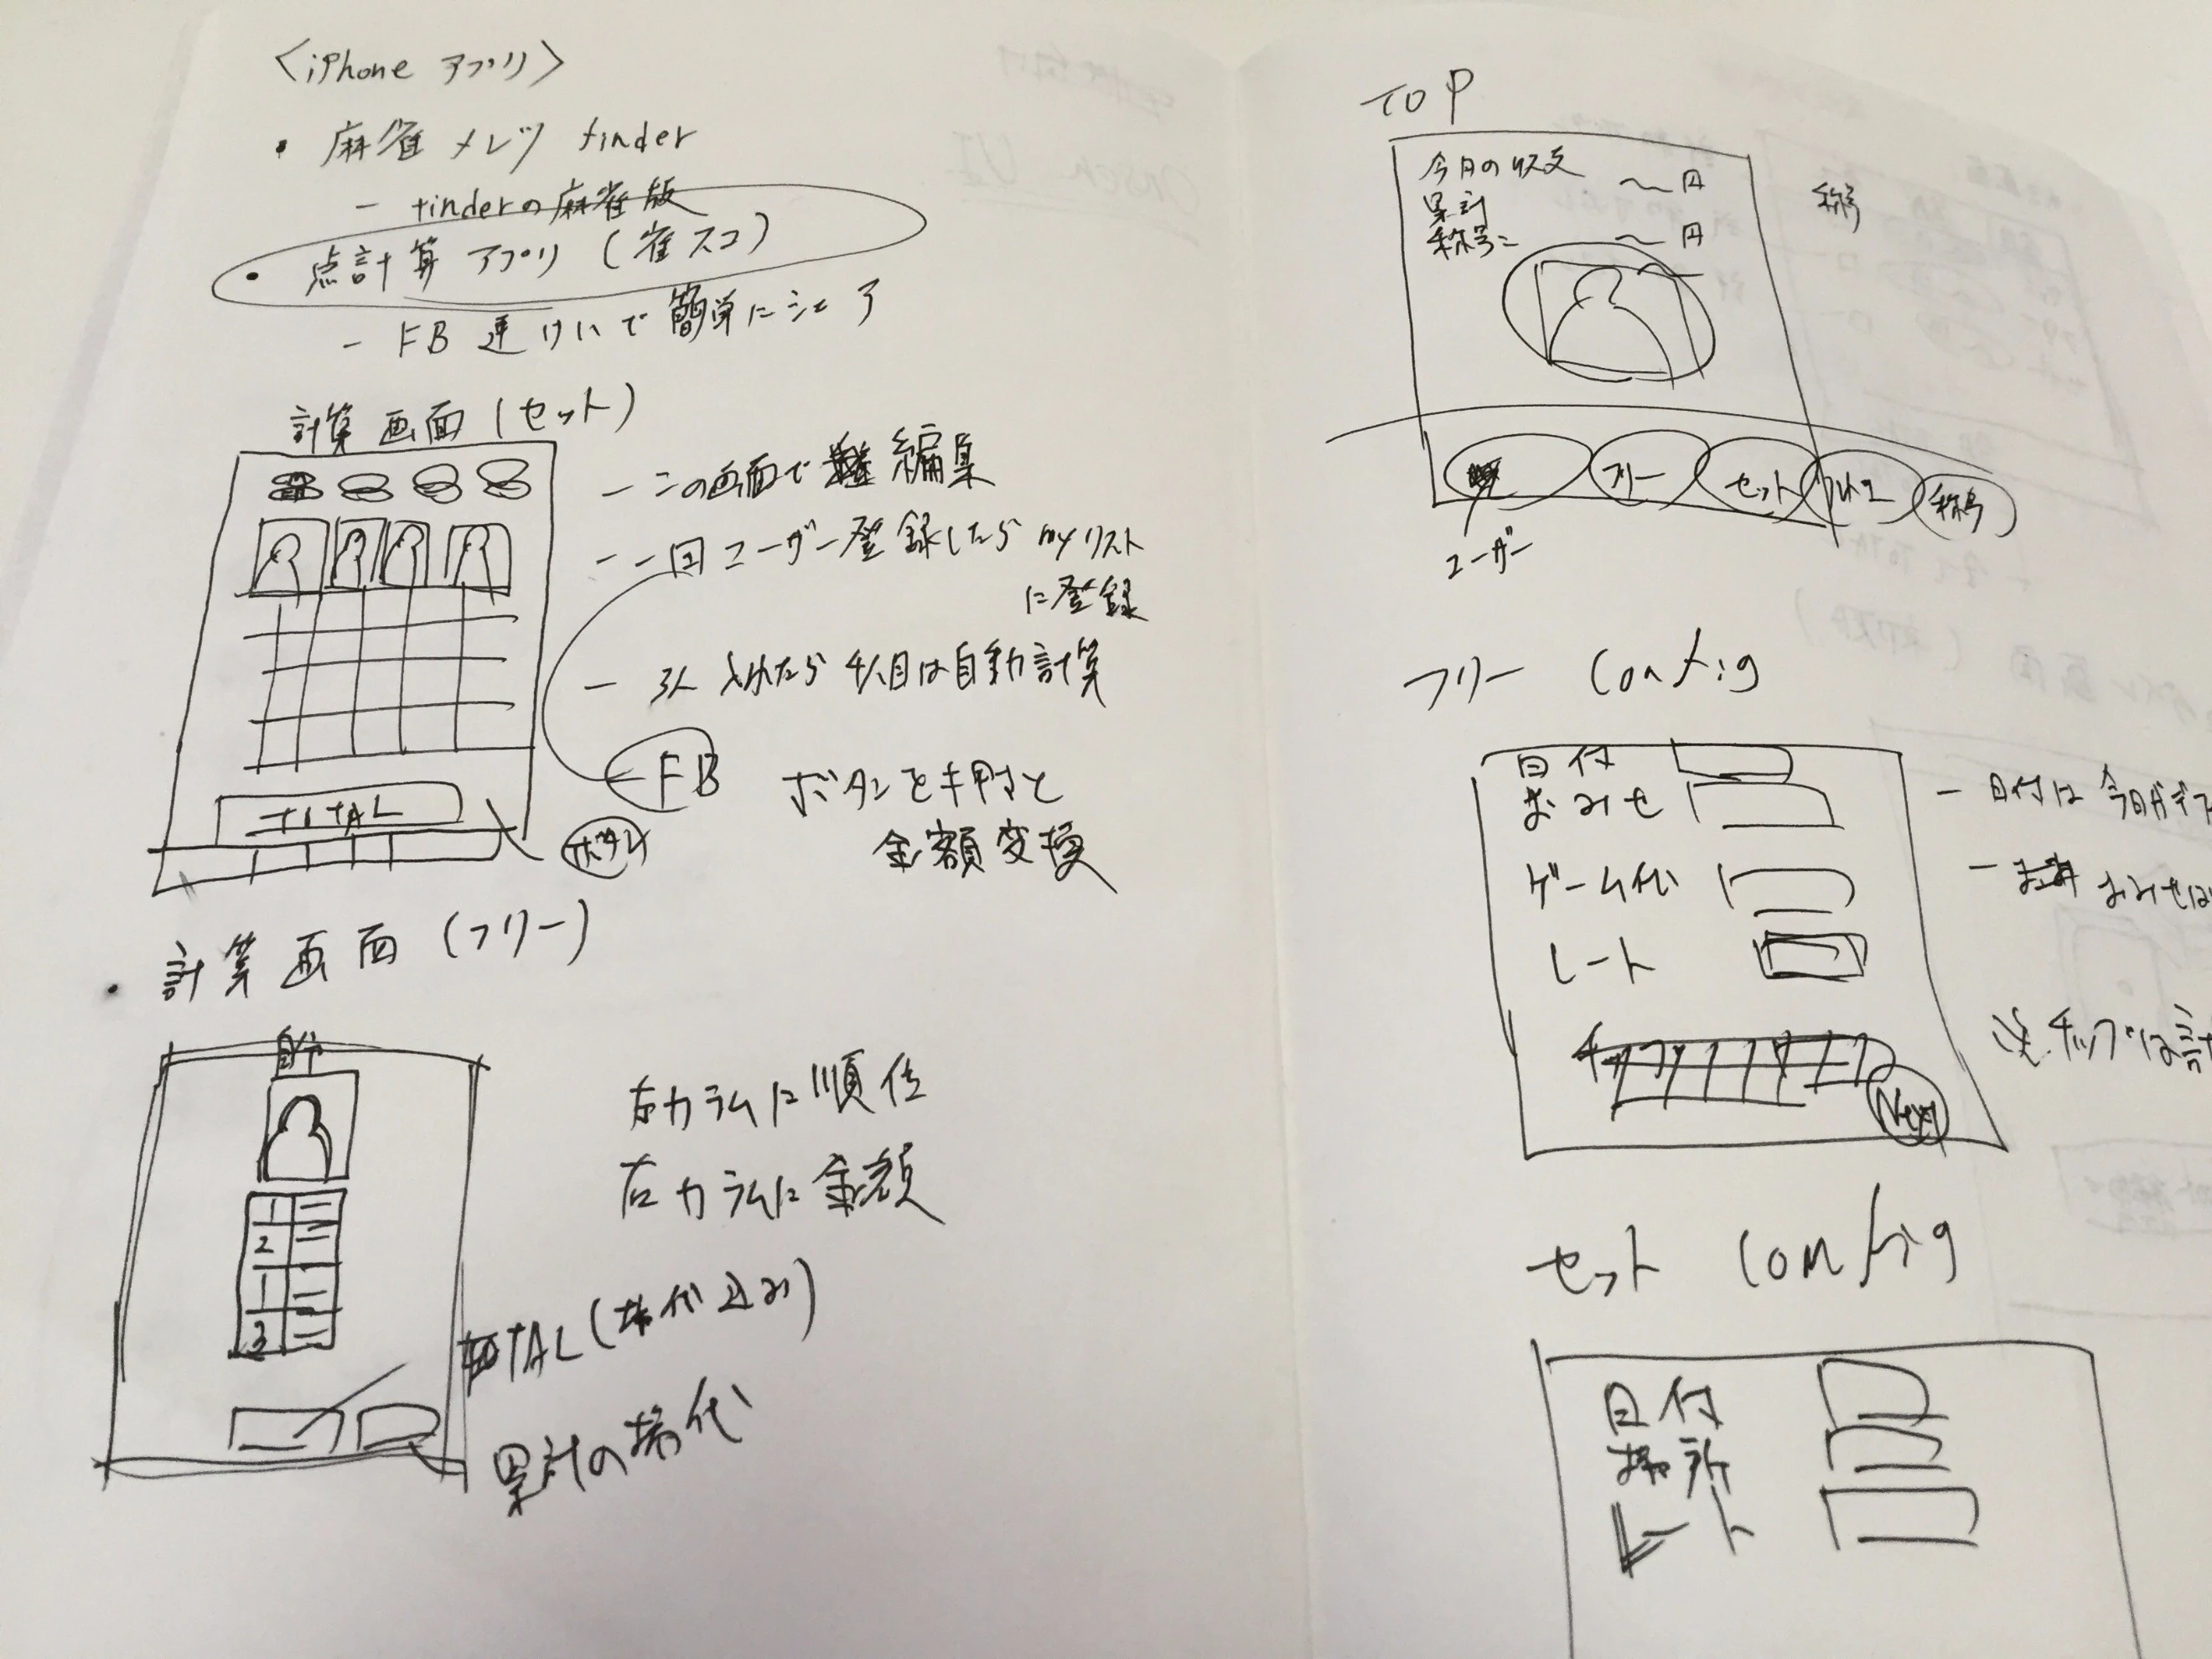 〈iPhone アプリ〉
・麻雀 メンツ finder
- tinderの麻雀版
・点計算アプリ (雀スコ)
- FB 連けいで簡単にシェア
計算画面 (セット)
- この画面で 編集
- 一回ユーザー登録したら myリスト
に登録
- 3人 入れたら 4人目は自動計算
FB
ボタンを押すと
金額変換
TOTAL
ボタン
・計算画面 (フリー)
自分
1
2
1
3
左カラムに順位
右カラムに金額
TOTAL (場代込み)
累計の場代
TOP
今月の収支 〜円
累計 〜円
称号:
称号
フリー
セット
称号
ユーザー
フリー Config
日付
おみせ
ゲーム代
レート
チップ
Next
- 日付は 今日がデフ
- おみせは
チップは計
セット Config
日付
場所
レート